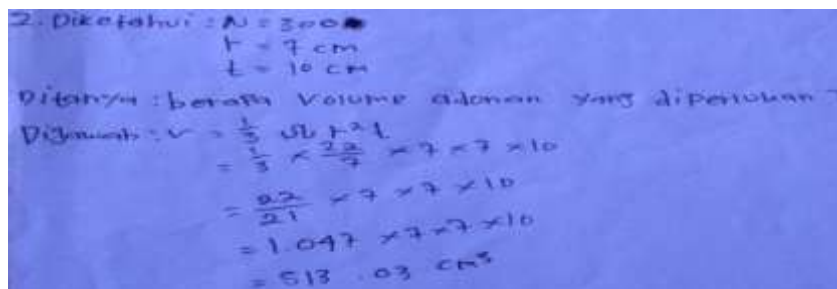 2. Diketahui : N = 300
r = 7 cm
t = 10 cm
Ditanya : berapa volume adonan yang diperlukan
Dijawab : V = 1/3 π r² t
= 1/3 × 22/7 × 7 × 7 × 10
= 22/21 × 7 × 7 × 10
= 1.047 × 7 × 7 × 10
= 513.03 cm³